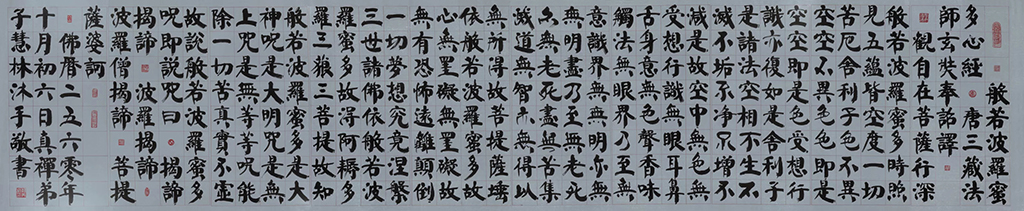 般若波羅蜜
多心經 唐三藏法
師玄奘奉詔譯
觀自在菩薩行深
般若波羅蜜多時照
見五蘊皆空度一切
苦厄舍利子色不異
空空不異色色即是
空空即是色受想行
識亦復如是舍利子
是諸法空相不生不
滅不垢不淨不增不
減是故空中無色無
受想行識無眼耳鼻
舌身意無色聲香味
觸法無眼界乃至無
意識界無無明亦無
無明盡乃至無老死
亦無老死盡無苦集
滅道無智亦無得以
無所得故菩提薩埵
依般若波羅蜜多故
心無罣礙無罣礙故
無有恐怖遠離顛倒
一切夢想究竟涅槃
三世諸佛依般若波
羅蜜多故得阿耨多
羅三藐三菩提故知
般若波羅蜜多是大
神呪是大明呪是無
上呪是無等等呪能
除一切苦真實不虛
故說般若波羅蜜多
呪即説呪曰 揭諦
揭諦 波羅揭諦
波羅僧揭諦 菩提
薩婆訶
佛曆二五六零年
十月初六日真禪弟
子慧林沐手敬書